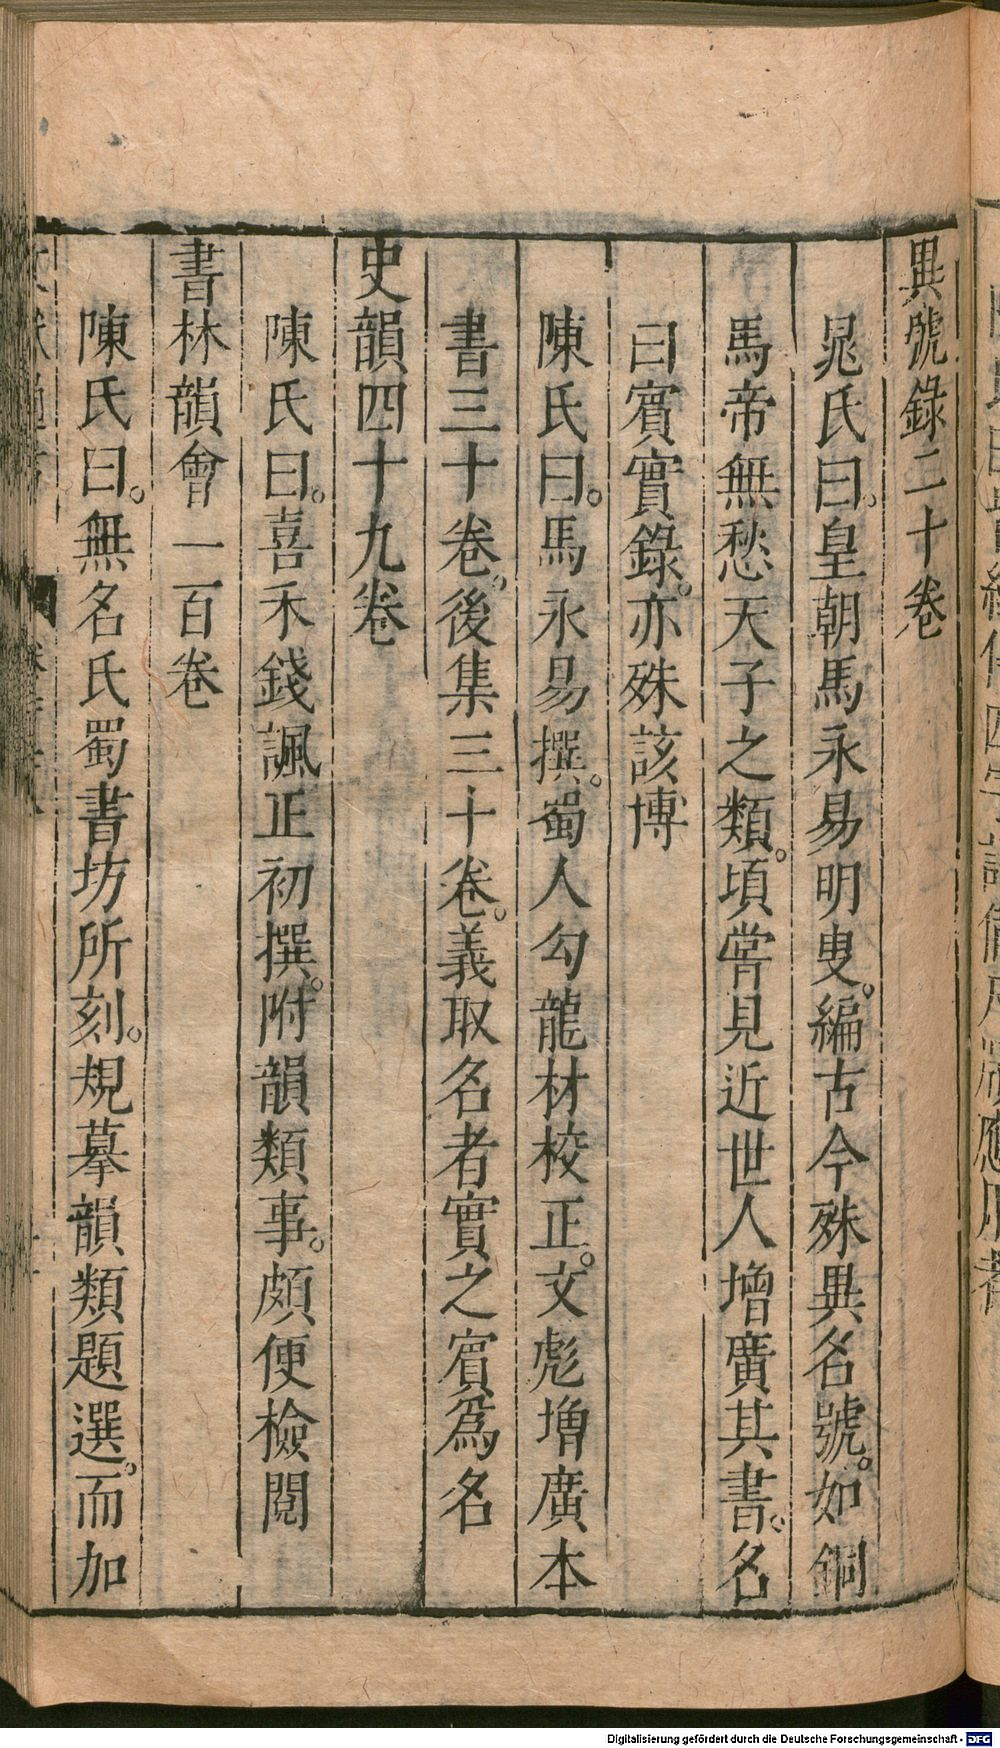 異號錄二十卷
晁氏曰。皇朝馬永易明叟。編古今殊異名號。如銅
馬帝無愁天子之類。頃嘗見近世人增廣其書。名
曰賓實錄。亦殊該博
陳氏曰。馬永易撰。蜀人勾龍材校正。文彪增廣本
書三十卷。後集三十卷。義取名者實之賓爲名
史韻四十九卷
陳氏曰。嘉禾錢諷正初撰。附韻類事。頗便檢閱
書林韻會一百卷
陳氏曰。無名氏蜀書坊所刻。規摹韻類題選。而加
Digitalisierung gefördert durch die Deutsche Forschungsgemeinschaft - DFG